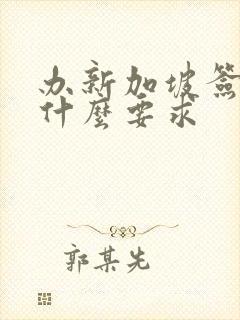 办新加坡簽
什麼要求
郭某先